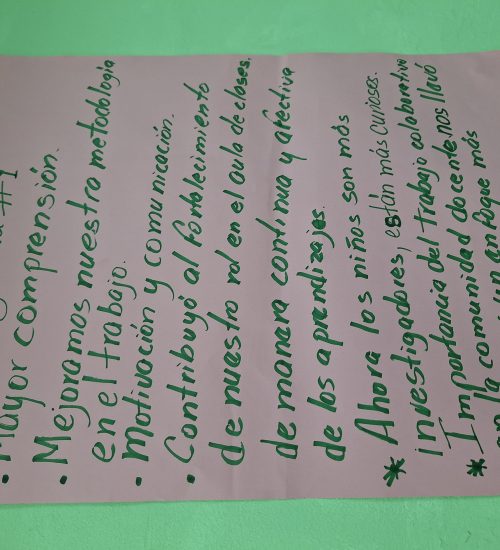 #1
• Mayor comprensión.
• Mejoramos nuestra metodología
en el trabajo.
• Motivación y comunicación.
• Contribuyó al fortalecimiento
de nuestro rol en el aula de clases.
de manera continua y afectiva
de los aprendizajes.
* Ahora los niños son más
investigadores, están más curiosos.
* Importancia del trabajo colaborativo
en la comunidad docente, nos llevó
más